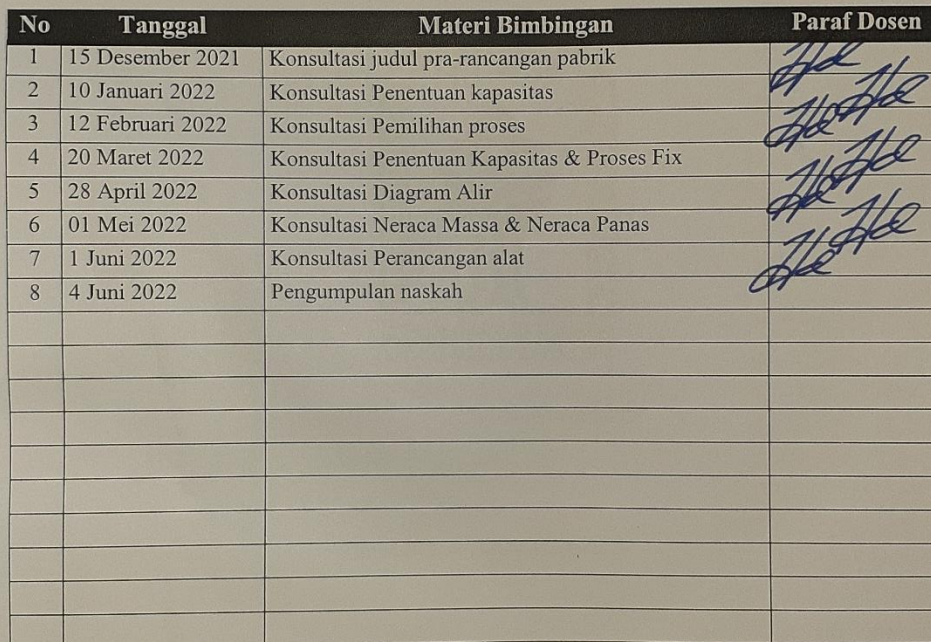 No Tanggal Materi Bimbingan Paraf Dosen
1 15 Desember 2021 Konsultasi judul pra-rancangan pabrik
2 10 Januari 2022 Konsultasi Penentuan kapasitas
3 12 Februari 2022 Konsultasi Pemilihan proses
4 20 Maret 2022 Konsultasi Penentuan Kapasitas & Proses Fix
5 28 April 2022 Konsultasi Diagram Alir
6 01 Mei 2022 Konsultasi Neraca Massa & Neraca Panas
7 1 Juni 2022 Konsultasi Perancangan alat
8 4 Juni 2022 Pengumpulan naskah